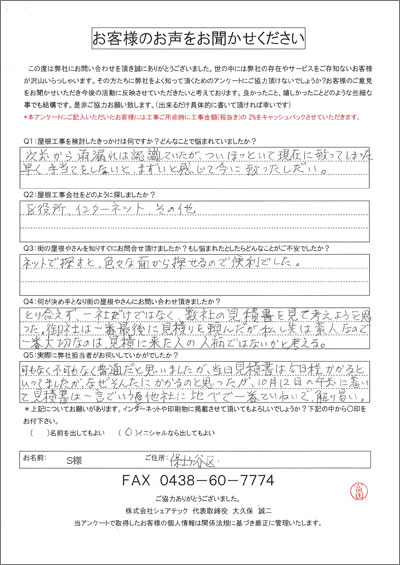 お客様のお声をお聞かせください
この度は弊社にお問い合わせを頂き誠にありがとうございました。世の中には弊社の存在やサービスをご存知ないお客様
が沢山いらっしゃいます。その方たちに弊社をよく知って頂くためのアンケートにご協力頂けないでしょうか?お客様のご意見
をお聞かせいただき今後の活動に反映させていただきたいと考えております。良かったこと、嬉しかったことどのような些細な
事でも結構です。是非ご協力お願い致します。(出来るだけ具体的に書いて頂ければ幸いです)
*本アンケートにご記入いただいたお客様には工事ご用命時に工事金額(税抜き)の2%をキャッシュバックさせていただきます。
Q1:屋根工事を検討したきっかけは何ですか?どんなことで悩まれていましたか?
から雨漏れは認識していたが、ついほっといて現在に致ってしまった
早く手当てをしないと、まずいと感じて今に致ったしだい。
Q2:屋根工事会社をどのように探しましたか?
区役所、インターネット、その他
Q3:街の屋根やさんを知りすぐにお問合せ頂けましたか?もし悩まれたとしたらどんなことがご不安でしたか?
ネットで探すと、色々な面から探せるので便利でした。
Q4:何が決め手となり街の屋根やさんにお問い合わせ頂きましたか?
とり合えず一社だけではなく、数社の見積書を見て考えようと思
った。御社は一番最後に見積りを頼んだが私し実は素人なので
一番大切なのは、見積に来た人の人柄ではないかと考える。
Q5:実際に弊社担当者がお伺いしていかがでしたか?
可もなく不可もなく普通だと思いましたが、当日見積書は5日程かかると
いってましたが、なぜそんなにかかるのと思ったが、10月12日の午前に着い
て見積書は一言でいうと他社に地べて一番ていねいで、解り易い。
*上記についてお願いがあります。インターネットや印刷物に掲載させて頂いてもよろしいでしょうか?下記の中から○印を
お付下さい。
( )名前を出してもよい (○)イニシャルなら出してもよい
お名前: S様 ご住所: 保土ヶ谷区
FAX 0438-60-7774
ご協力ありがとうございました。
株式会社シェアテック 代表取締役 大久保 誠二
当アンケートで取得したお客様の個人情報は関係法規に基づき厳正に管理いたします。